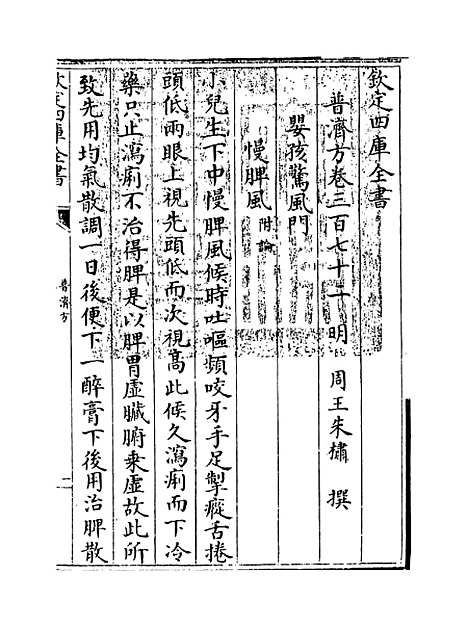 欽定四庫全書
普濟方卷三百七十一 明 周王朱橚 撰
嬰孩驚風門
慢脾風附論
小兒生下中慢脾風候時吐嘔頻咬牙手足掣瘲舌捲
頭低兩眼上視先頭低而次視高此候久瀉痢而下冷
藥只止瀉痢不治得脾是以脾胃虛臟腑乗虛故此所
致先用均氣散調一日後便下一醉膏下後用治脾散
欽定四庫全書
普濟方